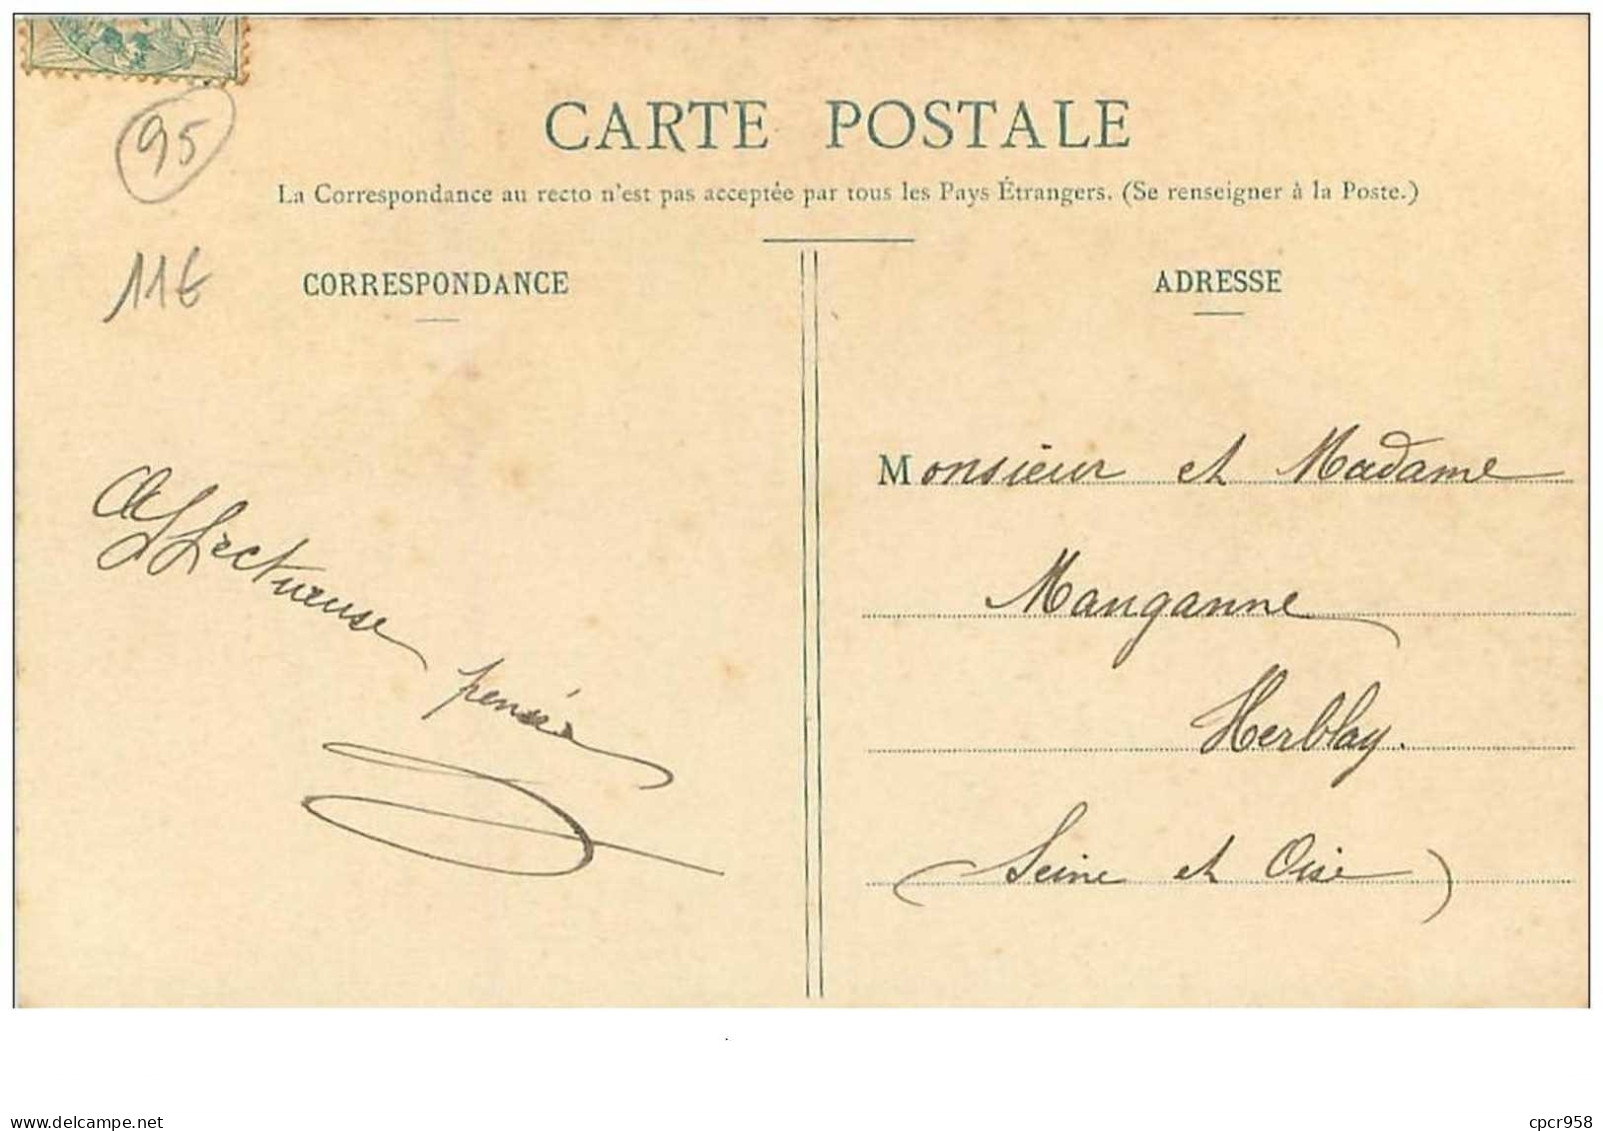 95
CARTE POSTALE
La Correspondance au recto n'est pas acceptée par tous les Pays Étrangers. (Se renseigner à la Poste.)
11€
CORRESPONDANCE
Affectueuse
pensée
ADRESSE
Monsieur et Madame
Manganne
Herblay.
(Seine et Oise)
delcampe.net
cpcr958